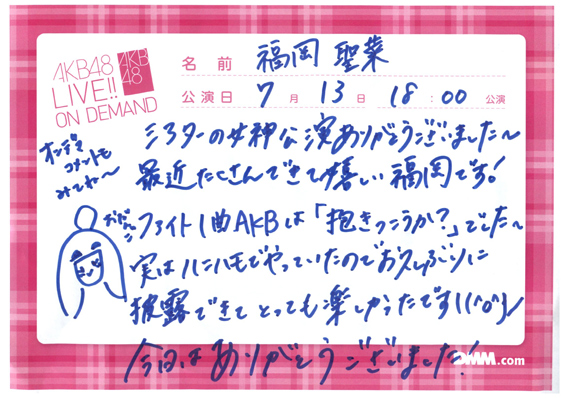 AKB48
LIVE!!
ON DEMAND
AKB
48
名前 福岡 聖菜
公演日 7月13日 18:00公演
オンデマ
コメントも
みてね〜
シアターの女神公演ありがとうございました〜
最近たくさんできて嬉しい福岡です!
おだんご
ファイト1曲AKBは「抱きつこうか?」でした〜
実はハニハモでやっていたのでお久しぶりに
披露できてとっても楽しかったです!(^o^)ノ
今日はありがとうございました!
DMM.com